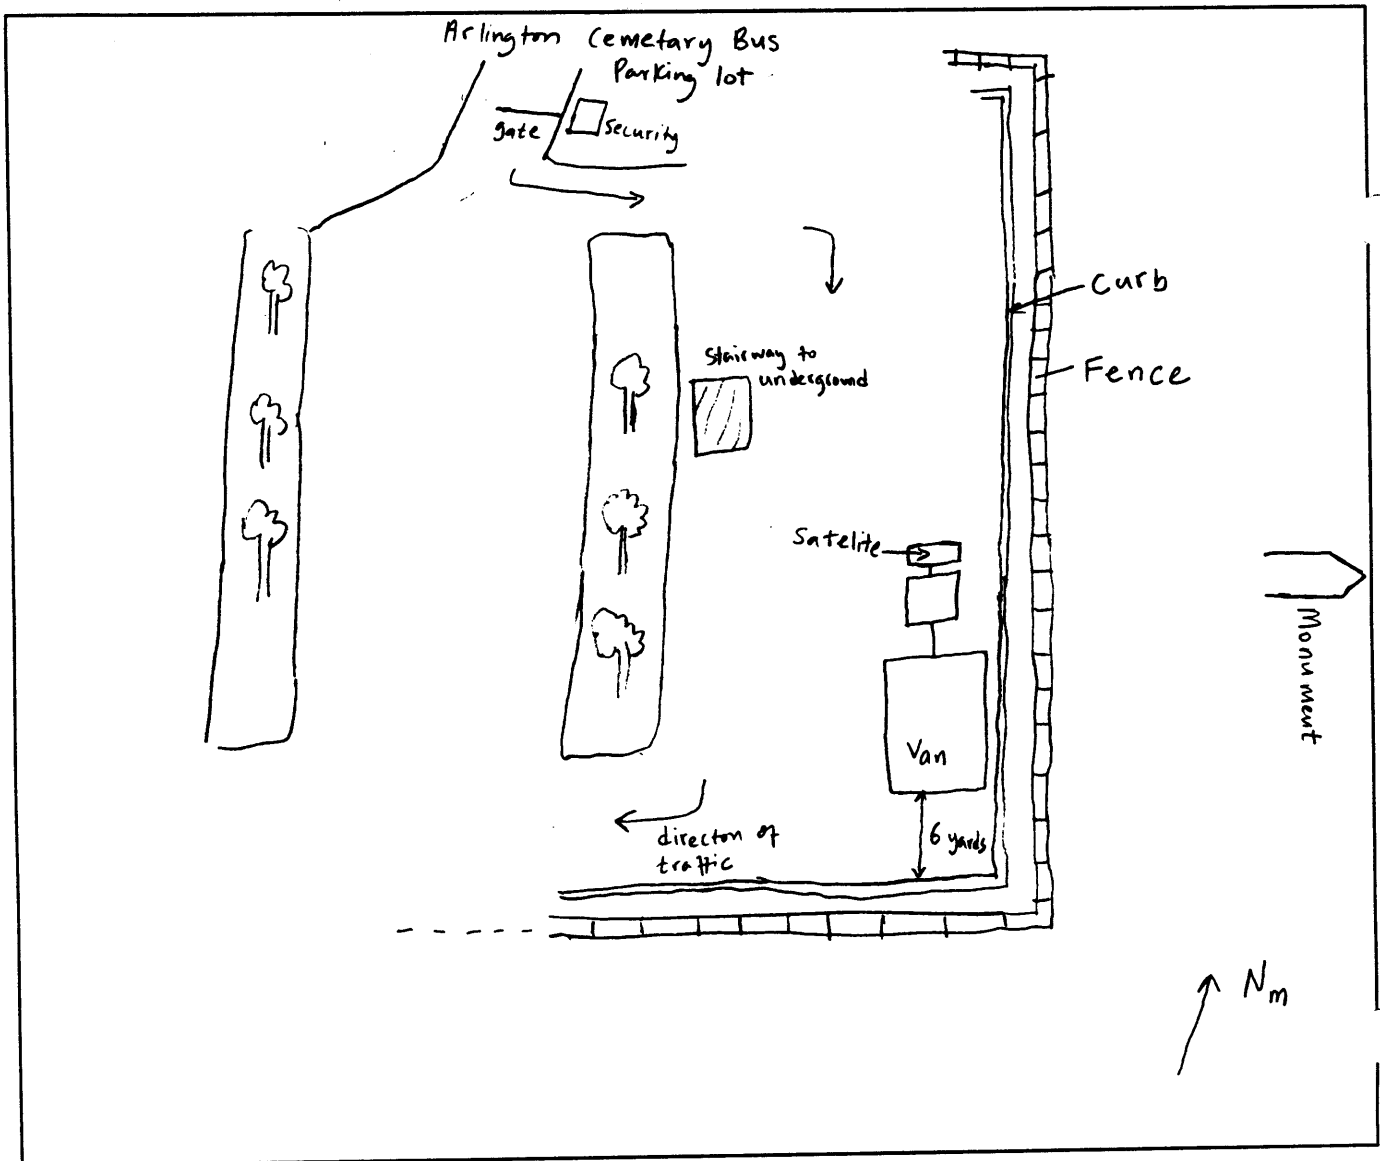 Arlington Cemetary Bus
Parking lot
gate
Security
Curb
Stairway to
underground
Fence
Satelite
Monument
Van
6 yards
directon of
traffic
Nm